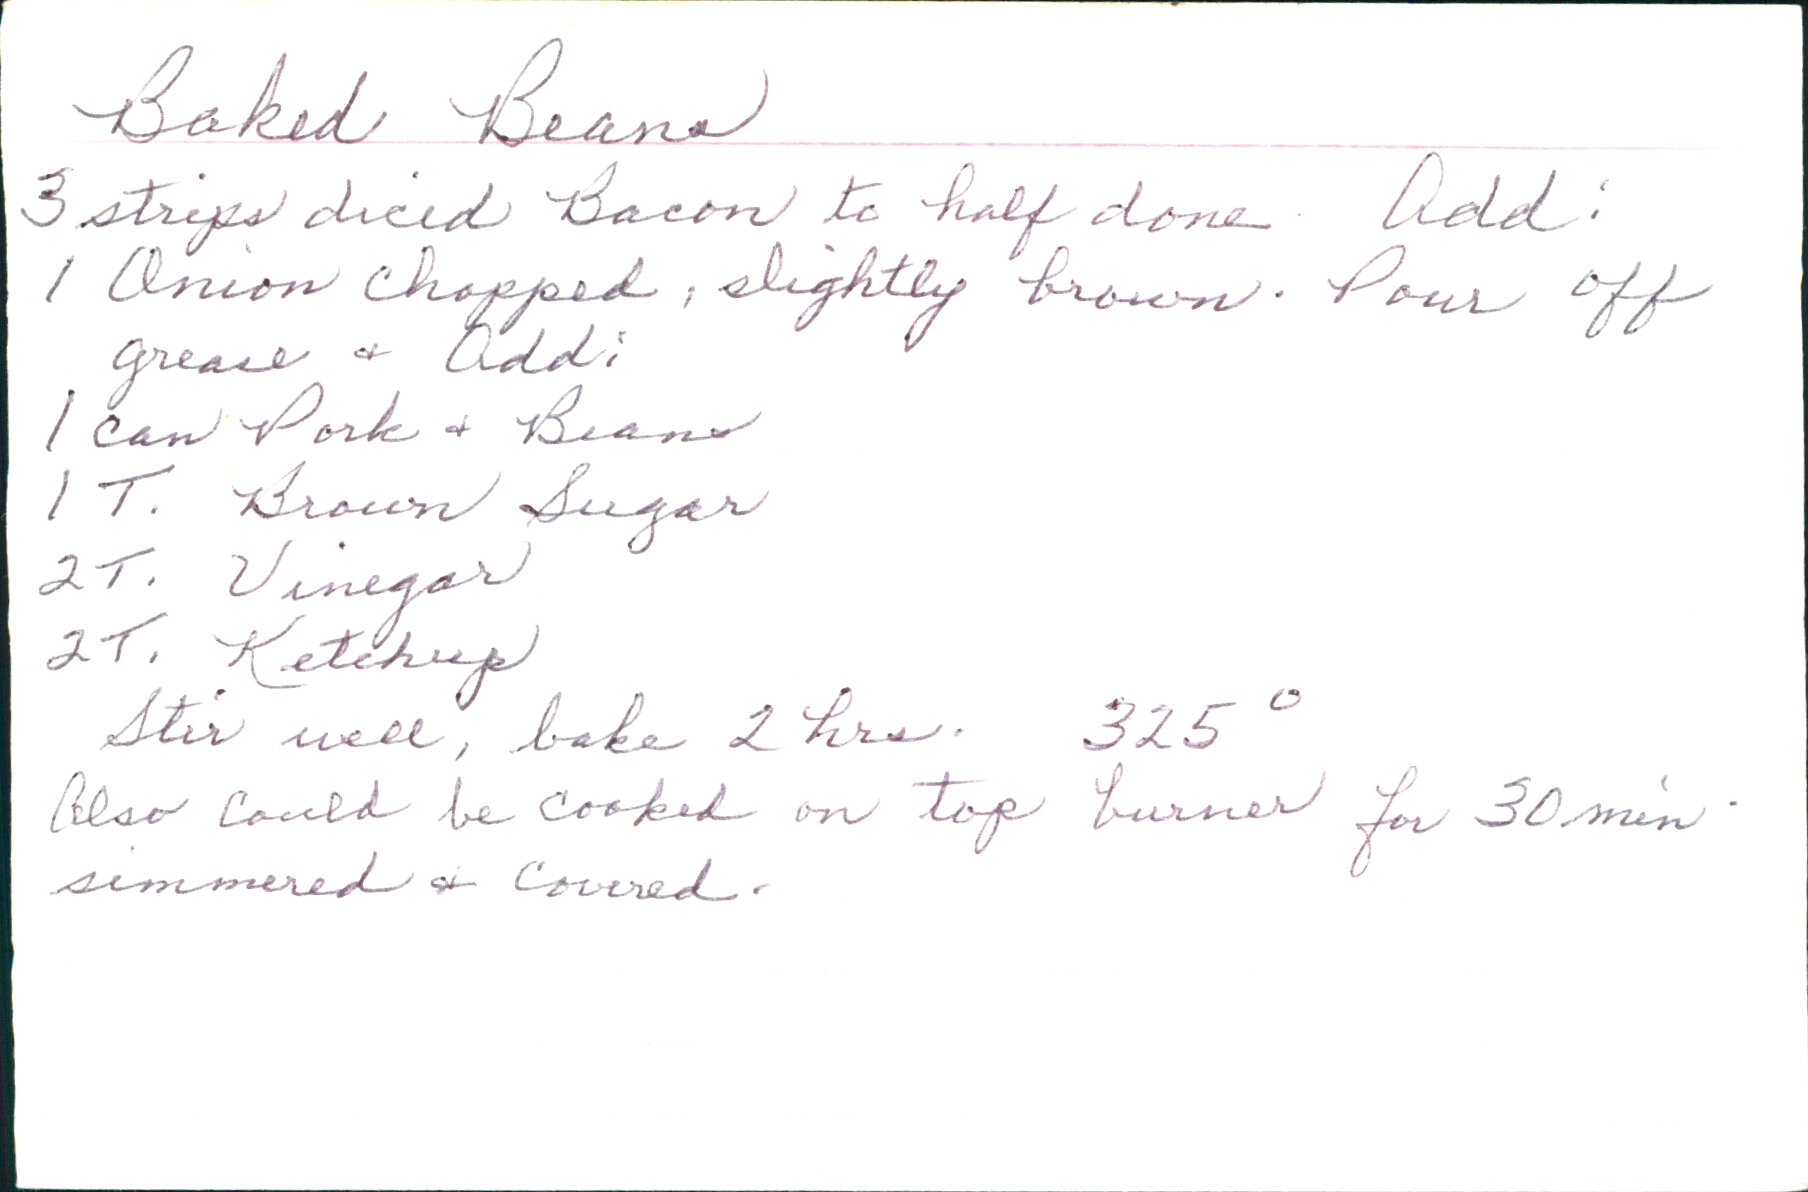 Baked Beans
3 strips diced Bacon to half done. Add:
1 Onion chopped, slightly brown. Pour off
grease & Add:
1 can Pork & Beans
1 T. Brown Sugar
2 T. Vinegar
2 T. Ketchup
Stir well, bake 2 hrs. 325°
Also could be cooked on top burner for 30 min.
simmered & covered.